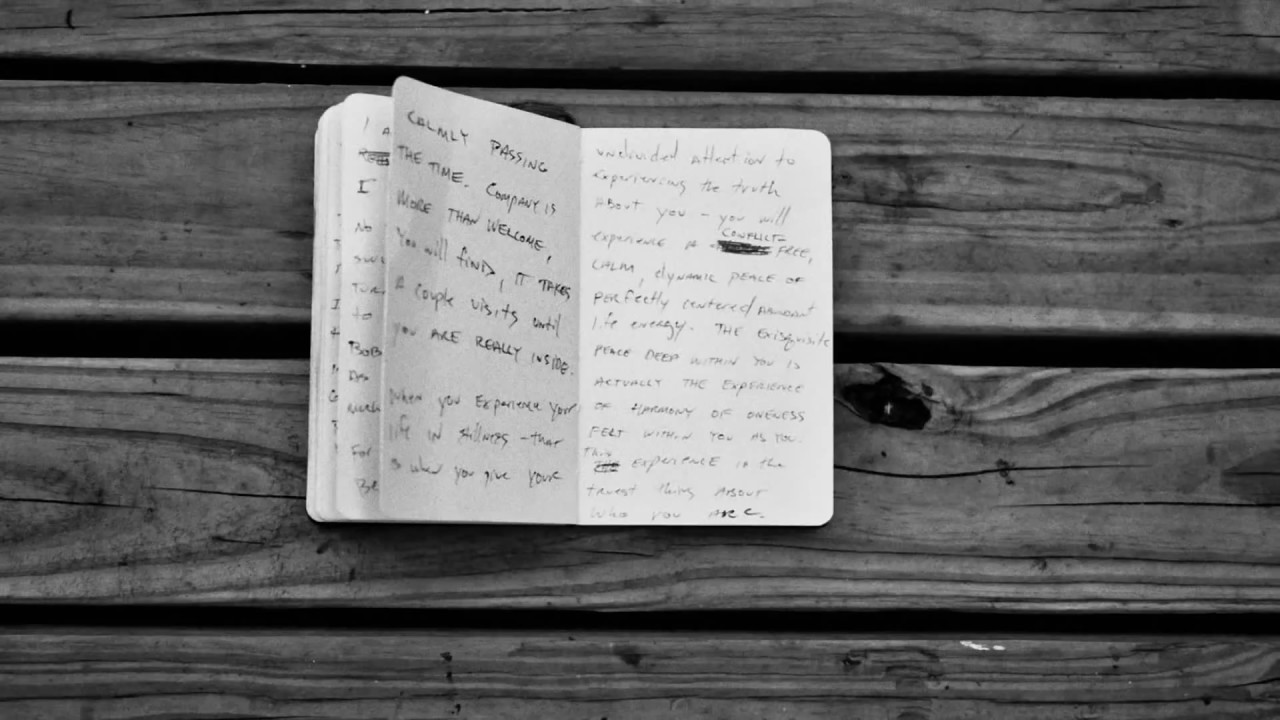 I
No
to
BOB
CALMLY PASSING
THE TIME. COMPANY IS
MORE THAN WELCOME,
You will find, IT TAKES
A couple visits until
you ARE REALLY INSIDE.
When you Experience your
life in stillness - that
is when you give your
undivided attention to
experiencing the truth
About you - you will
experience A CONFLICT-FREE,
CALM, dynamic peace of
perfectly centered
life energy. THE Exisquisite
PEACE DEEP WITHIN YOU IS
ACTUALLY THE EXPERIENCE
OF HARMONY OF ONENESS
FELT WITHIN YOU AS YOU.
This experience is the
truest thing About
Who you ARE.